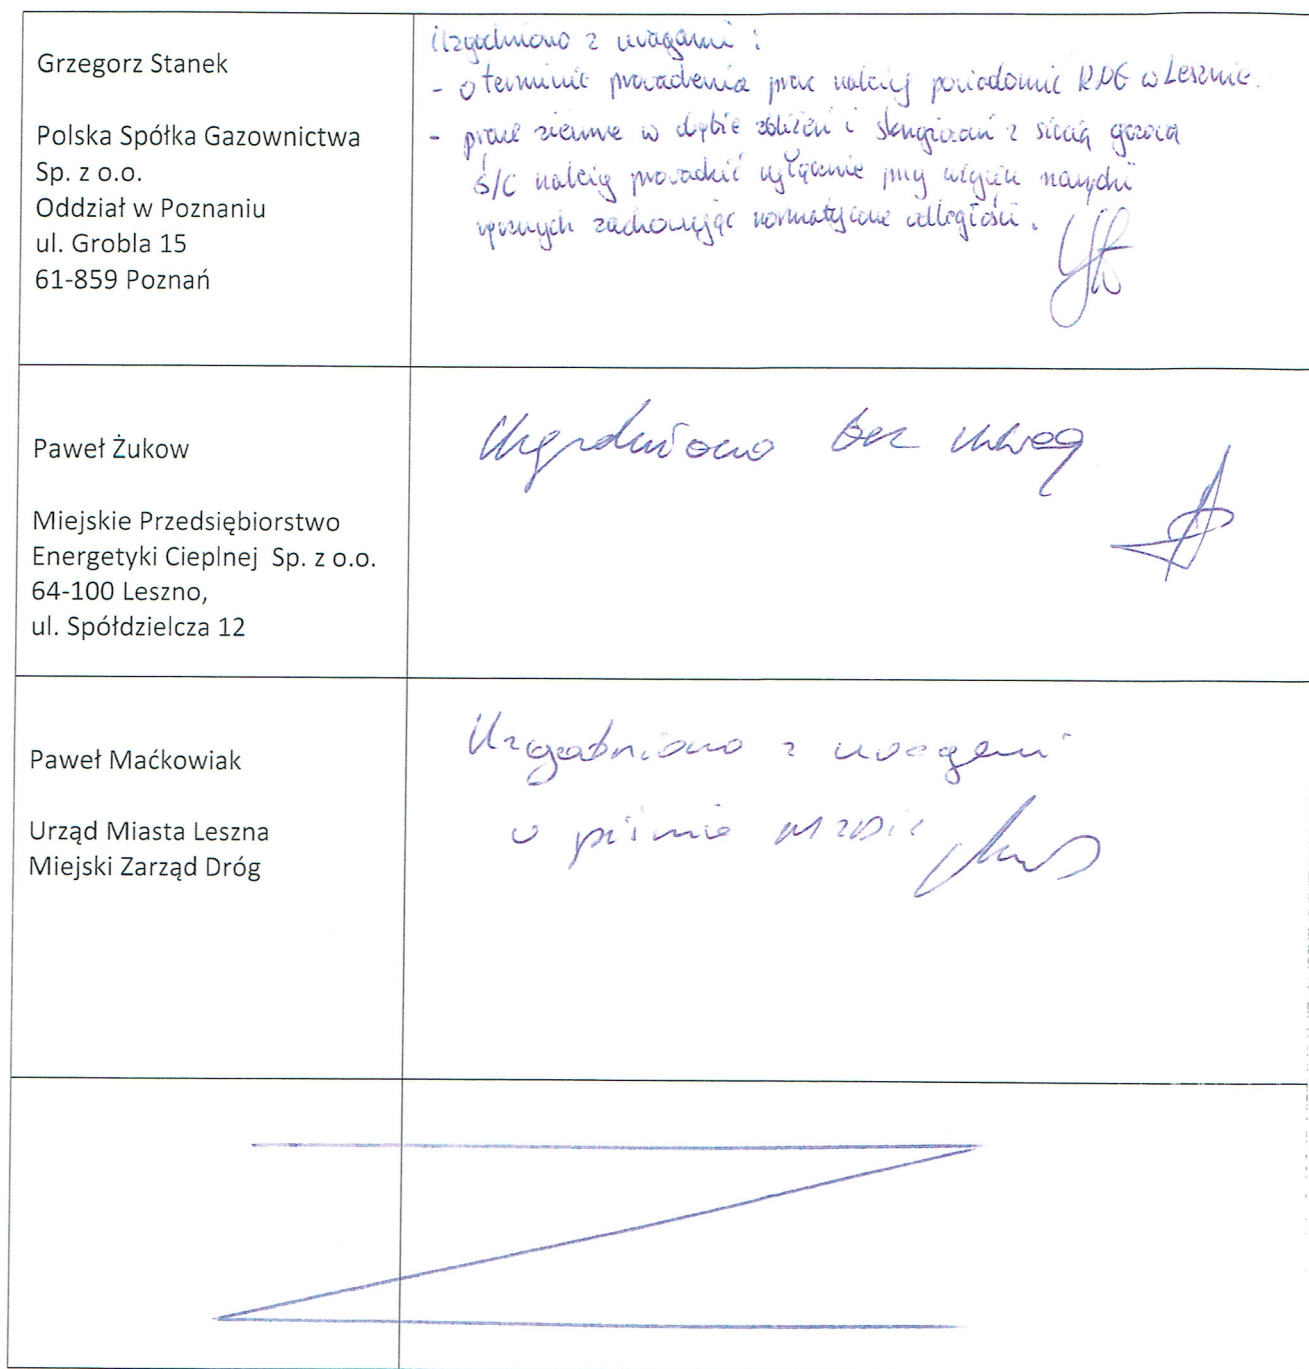 Grzegorz Stanek
Polska Spółka Gazownictwa
Sp. z o.o.
Oddział w Poznaniu
ul. Grobla 15
61-859 Poznań
Uzgodniono z uwagami :
- o terminie prowadzenia prac należy powiadomić RDG w Lesznie.
- prace ziemne w obrębie zbliżeń i skrzyżowań z siecią gazową
ś/c należy prowadzić wyłącznie przy użyciu narzędzi
ręcznych zachowując normatywne odległości.
Paweł Żukow
Miejskie Przedsiębiorstwo
Energetyki Cieplnej Sp. z o.o.
64-100 Leszno,
ul. Spółdzielcza 12
Uzgodniono bez uwag
Paweł Maćkowiak
Urząd Miasta Leszna
Miejski Zarząd Dróg
Uzgodniono z uwagami
w piśmie